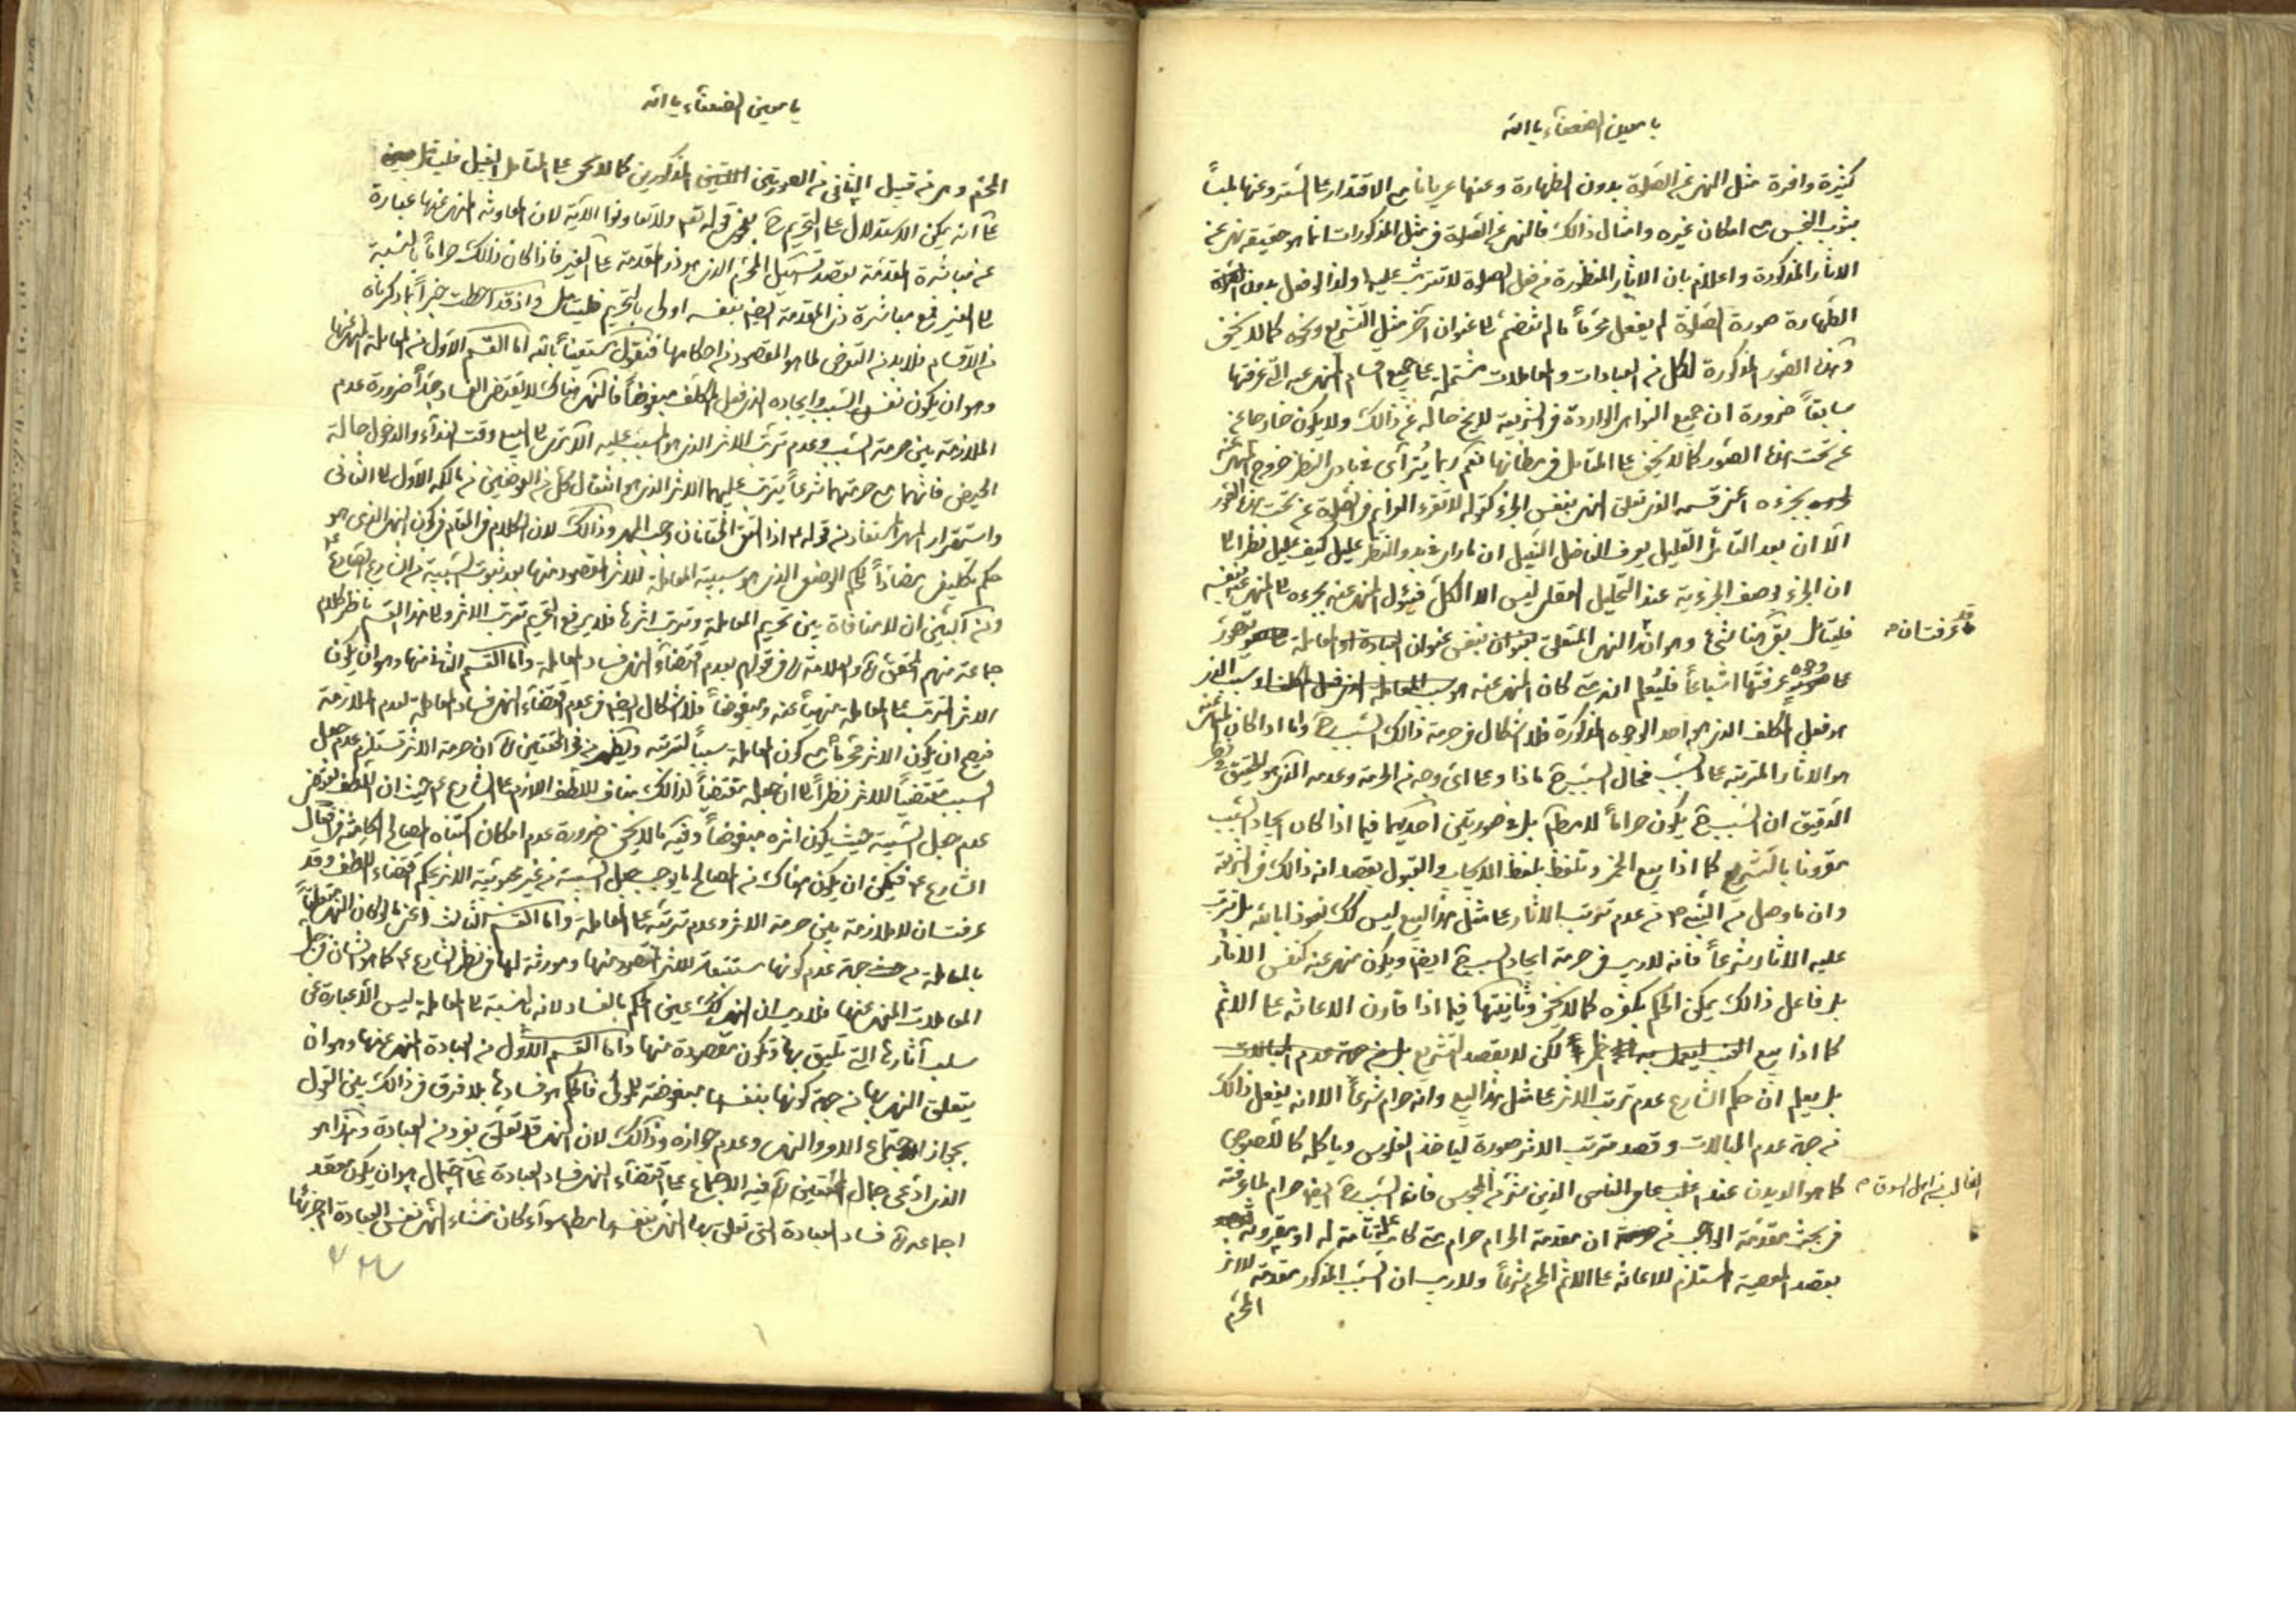 يا معين الضعفاء يا الله
كثيرة وافرة مثل النهي عن الصلوة بدون الطهارة وعنها عريانا مع الاقتدار على الستر وعنها لمساً
بثوب النجس مع امكان غيره وامثال ذالك فالنهي عن الصلوة في مثل المذكورات انما هو حقيقة نهي عن
الاثار المذكورة واعلام بان الاثار المنظورة من فعل الصلوة لا تترتب عليها ولذا لو فعل بدون
الطهارة صورة الصلوة لم يفعل محرماً ما لم تنضم الى عنوان آخر مثل التشريع ونحوه كما لا يخفى
وهذه الصور المذكورة لكل من العبادات والمعاملات مشتملة على جميع اقسام المنهي عنه التي عرفتها
سابقاً ضرورة ان جميع النواهي الواردة في الشريعة لا يخ حاله عن ذالك ولا يكون خارجا عن
عن تحت هذه الصور كما لا يخفى على المتامل في مظانها نعم ربما يترآى في بادي النظر خروج المنهي عنه
بجزءه اعني قسمه الذي تعلق النهي بنفس الجزء كقوله لا تقرء العزايم في الصلوة عن تحت هذه الصور
الا ان بعد التامل القليل يعرف الفاضل النبيل ان ما راى في بدو النظر عليل كيف عليل نظرا الى
ان الجزء بوصف الجزءية عند التحليل العقلي ليس الا الكل فيئول المنهي عنه بجزءه الى المنهي عنه بنفسه
فليتامل بقي هنا شئ وهو ان النهي المتعلق بعنوان بنفس عنوان العبادة او المعاملة يتصور
قد عرفت ان م
على وجوه عرفتها اشباعاً فليعلم انه متى كان المنهي عنه هو سبب المعاملة الذي فعل المكلف او سبب الذي
هو فعل المكلف الذي هو احد الوجوه المذكورة فلا اشكال في حرمة ذالك السبب ح واما اذا كان المنهي عنه
هو الاثار المترتبة على السبب فحال السبب ح ماذا وعلى اي وجه من الحرمة وعدمه الذي هو التحقيق
الدقيق ان السبب ح يكون حراماً لا مطلقا بل في صورتين احديهما فيما اذا كان ايجاد السبب
مقرونا بالتشريع كما اذا بيع الخمر وتلفظ بلفظ الايجاب والقبول بقصد انه ذالك في الشريعة
وان ما وصل من النبي ص من عدم ترتب الاثار على مثل هذا البيع ليس كك نعوذ بالله بل يترتب
عليه الاثار شرعاً فانه لا ريب في حرمة ايجاد السبب ح ايضا ويكون منهي عنه كنفس الاثار
بل فاعل ذالك يمكن الحكم بكفره كما لا يخفى وثانيتهما فيما اذا قارن الاعانة على الاثم
كما اذا بيع العنب ليعمل به لكن لا بقصد التشريع بل من جهة عدم المبالات
بل يعلم ان حكم الشارع عدم ترتب الاثر على مثل هذا البيع وانه حرام شرعاً الا انه يفعل ذالك
من جهة عدم المبالات وقصد مترتب الاثر صورة لياخذ الفلوس وياكله كاللصوص
كما هو الديدن عند اغلب عامي الناس الذين شر من المجوس فان السبب ح ايضا حرام لما عرفته
الغالب من اهل السوق م
في بحث مقدمة الواجب من ان مقدمة الحرام حرام متى كانت علة تامة له او مقرونة
بقصد المعصية المستلزم للاعانة على الاثم المحرم شرعاً ولا ريب ان السبب المذكور مقدمة للاثر
المحرم
يا معين الضعفاء يا الله
المحرم وهي من قبيل الثاني من الصورتين المذكورين كما لا يخفى على المتامل النبيل فليتامل
على انه يمكن الاستدلال على التحريم ح بفحوى قوله تعم ولا تعاونوا الآية لان المعاونة المنهي عنها عبارة
عن مباشرة المقدمة بقصد تسهيل المحرم الذي هو ذو المقدمة على الغير فاذا كان ذالك حراماً بالنسبة
الى الغير فمع مباشرة ذي المقدمة ايضا بنفسه اولى بالتحريم فليتامل واذ قد احطت خبراً بما ذكرناه
من الاقسام فلا بد من التعرض لما هو المقصود من احكامها فنقول مستعيناً بالله اما القسم الاول من المعاملة المنهي عنها
وهو ان يكون نفس السبب وايجاده الذي فعل المكلف مبغوضاً فالنهي هناك لا يقتضي الفساد جداً ضرورة عدم
الملازمة بين حرمة السبب وعدم ترتب الاثر الذي هو المسبب عليه الا ترى الى البيع وقت النداء والدخول حالة
الحيض فانهما مع حرمتهما شرعاً يترتب عليهما الاثر الذي هو انتقال كل من العوضين من مالكه الاول الى الثاني
واستقرار المهر المستفاد من قوله ع اذا التقى الختانان وجب المهر وذالك لان الكلام في المقام في كون النهي الذي هو
حكم تكليفي مضاداً للحكم الوضعي الذي هو سببية المعاملة للاثر المقصود منها بعد ثبوت السببية من الشارع
ومن البين ان لا منافاة بين تحريم المعاملة وترتب اثرها فلا يرفع التحريم ترتب الاثر والى هذا القسم ناظر كلام
جماعة منهم المحقق ره والعلامة ره في قولهم بعدم اقتضاء النهي فساد المعاملة واما القسم الثاني منها وهو ان يكون
الاثر المترتب على المعاملة منهياً عنه ومبغوضاً فلا اشكال ايضا في عدم اقتضاء النهي فساد المعاملة لعدم الملازمة
فيصح ان يكون الاثر محرماً مع كون المعاملة سبباً لترتبه ويظهر من فخر المحققين ره ان حرمة الاثر تستلزم عدم جعل
السبب مقتضياً للاثر نظراً الى ان جعله مقتضياً لذالك مناف للطف اللازم على الشارع ع حيث ان اللطف يقتضي
عدم جعل السببية حيث يكون اثره مبغوضاً وفيه ما لا يخفى ضرورة عدم امكان اكتناه المصالح الكامنة في افعال
الشارع ع فيمكن ان يكون هناك من المصالح ما يوجب جعل السببية من غير محبوبية الاثر بحكم اقتضاء اللطف وقد
عرفت ان لا ملازمة بين حرمة الاثر وعدم ترتبه على المعاملة واما القسم الثالث اعني ما لو كان النهي متعلقاً
بالمعاملة من جهة عدم كونها مستتبعة للاثر المقصود منها ومورثة لها في نظر الشارع ع كما هو الشان في جل
المعاملات المنهي عنها فلا ريب ان النهي كك عين الحكم بالفساد لانه بالنسبة الى المعاملة ليس الا عبارة عن
سلب آثارها التي تليق بها وتكون مقصودة منها واما القسم الاول من العبادة المنهي عنها وهو ان
يتعلق النهي بها من جهة كونها بنفسها مبغوضة للمولى فالحكم هو فسادها بلا فرق في ذالك بين القول
بجواز اجتماع الامر والنهي وعدم جوازه وذالك لان النهي قد تعلق بفرد من العبادة وهذا هو
الذي ادعى جمال المحققين ره فيه الاجماع على اقتضاء النهي فساد العبادة على احتمال هو ان يكون معقد
اجماعه ره فساد العبادة التي تعلق بها النهي بنفسها مطلقا سوآء كان منشاء النهي نفس العبادة او جزئها